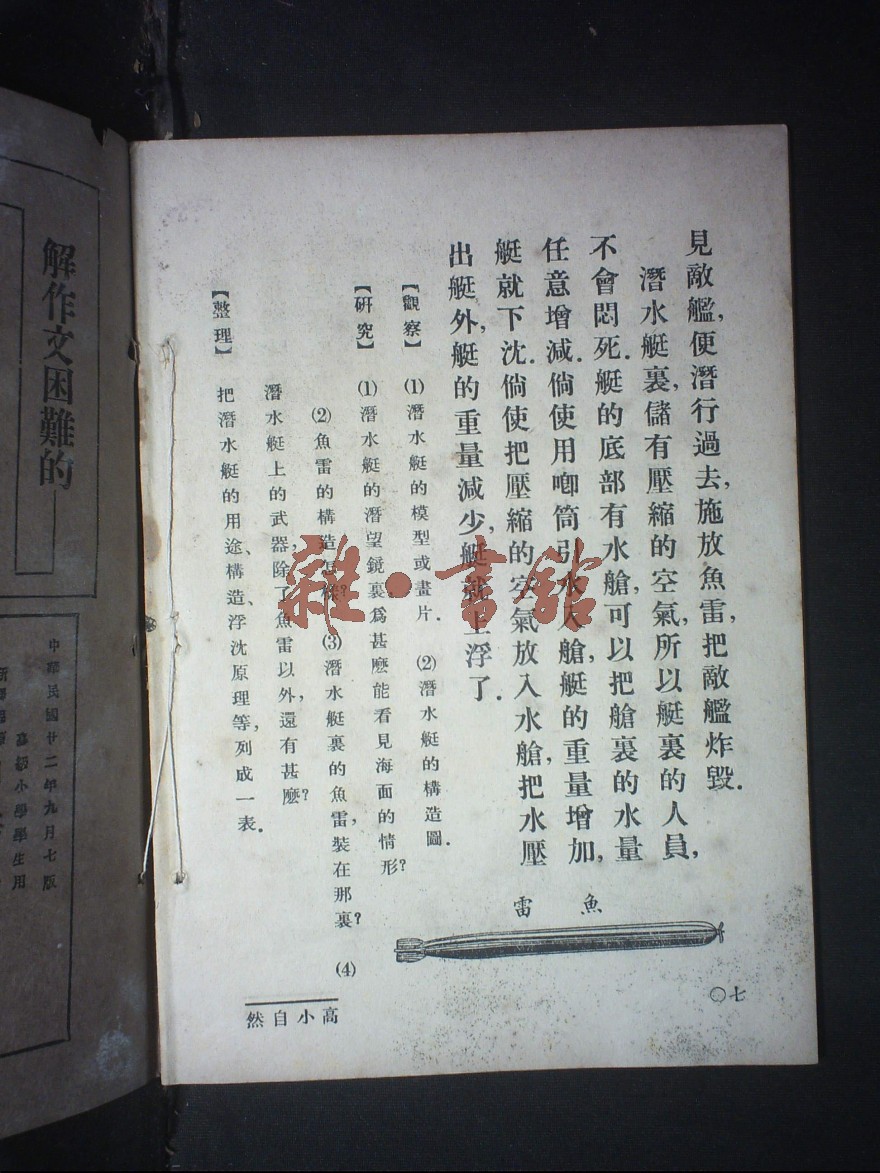 見敵艦，便潛行過去，施放魚雷，把敵艦炸毀．
潛水艇裏，儲有壓縮的空氣，所以艇裏的人員，
不會悶死．艇的底部有水艙，可以把艙裏的水量
任意增減．倘使用喞筒引水入艙，艇的重量增加，
艇就下沈．倘使把壓縮的空氣放入水艙，把水壓
出艇外，艇的重量減少，艇就上浮了．
【觀察】 ⑴潛水艇的模型或畫片． ⑵潛水艇的構造圖．
【研究】 ⑴潛水艇的潛望鏡裏爲甚麽能看見海面的情形？
⑵魚雷的構造怎樣？ ⑶潛水艇裏的魚雷，裝在那裏？ ⑷
潛水艇上的武器，除了魚雷以外，還有甚麽？
【整理】 把潛水艇的用途、構造、浮沈原理等，列成一表．
魚雷
七〇
高小自然
雜·書館
解作文困難的——
中華民國廿二年九月七版
高級小學學生用